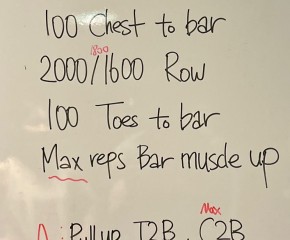 100 Chest to bar
1800
2000/1600 Row
100 Toes to bar
Max reps Bar muscle up
Max
: Pull up T2B, C2B